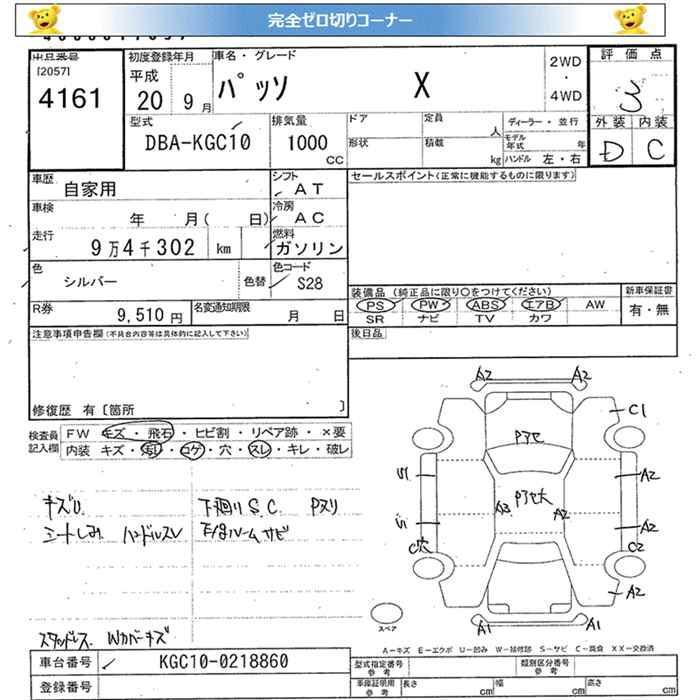 完全ゼロ切りコーナー
出品番号 初度登録年月 車名・グレード 2WD・4WD 評価点
[2057]
4161
平成20 9月 パッソ X 3
型式 排気量 ドア 定員 人 ディーラー・並行 外装 内装
DBA-KGC10 1000cc 形状 積載 kg モデル年式 年 ハンドル 左・右 D C
車歴 自家用 シフト AT セールスポイント(正常に機能するものに限ります)
車検 年 月( 日) 冷房 AC
走行 9万4千302 km 燃料 ガソリン
色 シルバー 色替 色コード S28
装備品 (純正品に限り○をつけてください) 新車保証書
PS PW ABS エアB AW 有・無
SR ナビ TV カワ
R券 9,510円 名変通知期限 月 日
後日品
注意事項申告欄(不具合内容等は具体的に記入して下さい)
修復歴 有 [箇所 ]
検査員記入欄 FW キズ・飛石・ヒビ割・リペア跡・×要
内装 キズ・汚レ・コゲ・穴・スレ・キレ・破レ
A2 A2
C1
Pアセ
S1 A2
Pアセ大
A3 A2
S1 A2
C穴 C2
A2
A1 A1
スペア
キズU 下廻りS.C. Pヌリ
シートしみ ハンドルスレ
サビ
スタッドレス Wカバーキズ
A-キズ E-エクボ U-凹み W-補修跡 S-サビ C-腐食 XX-交換済
車台番号 KGC10-0218860 型式指定番号 参考 類別区分番号 参考
登録番号 車庫証明用 参考 長さ cm 幅 cm 高さ cm